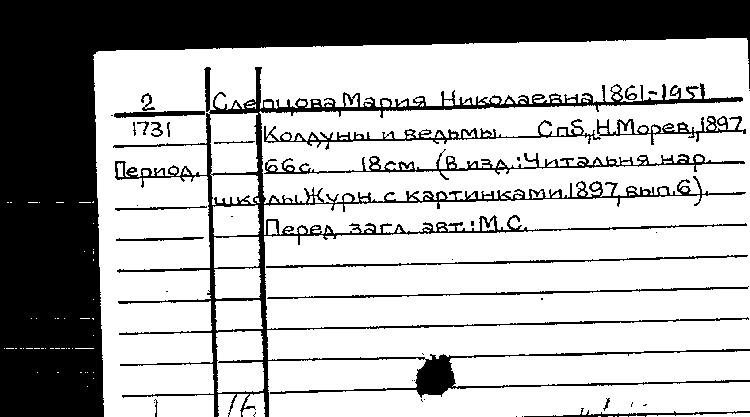 2 Слепцова, Мария Николаевна, 1861-1951
1731 Колдуны и ведьмы. Спб., Н.Морев, 1897.
Период. 66с. 18см. (В изд.: Читальня нар.
школы. Журн. с картинками. 1897, вып. 6).
Перед загл. авт.: М.С.
1 16